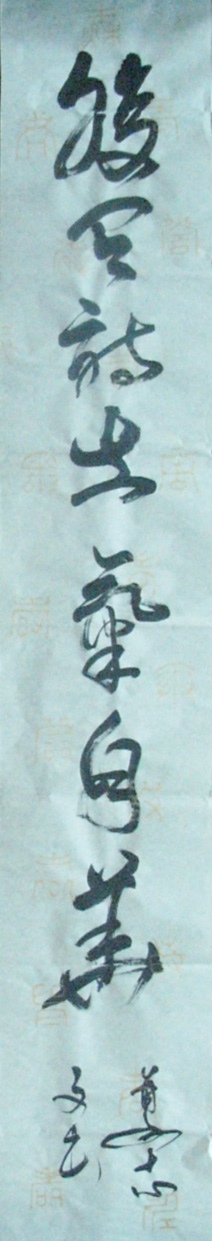 腹有詩書氣自華